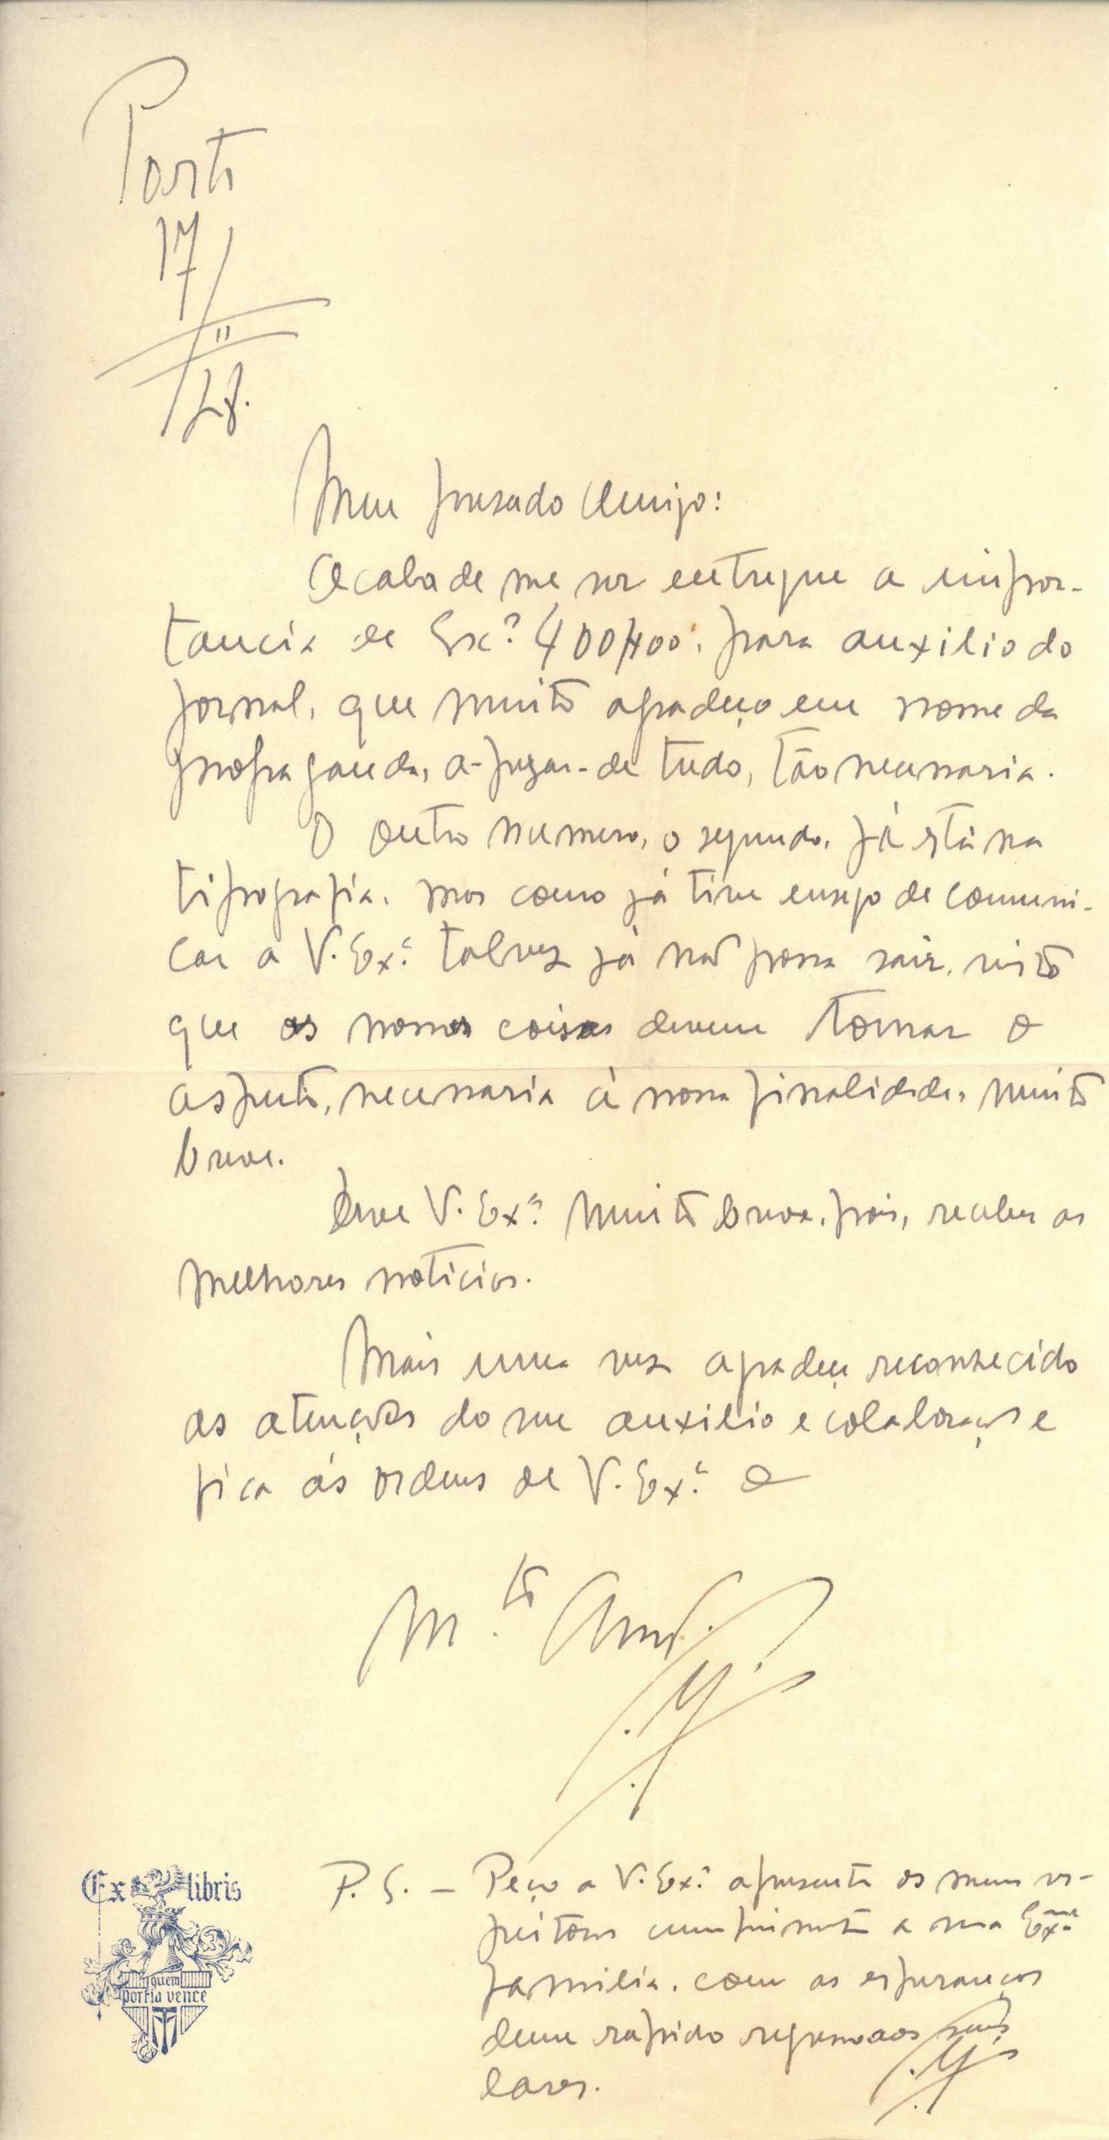 Porto
17
11
28.
Meu presado Amigo:
Acaba de me ser entregue a impor-
tancia de Esc.º 400$00, para auxilio do
jornal, que muito agradeço em nome da
propaganda, a-pezar-de tudo, tão necessaria.
O outro numero, o segundo, já está na
tipografia, mas como já tive ensejo de comuni-
car a V. Ex.ª talvez já não possa sair, visto
que as nossas coisas devem tomar o
aspecto, necessaria á nossa finalidade, muito
breve.
Deve V. Ex.ª muito breve, pois, receber as
melhores noticias.
Mais uma vez agradeço reconhecido
as atenções do seu auxilio e colaboração e
fica ás ordens de V. Ex.ª o
M.to Am.
Ex libris
quem
porfia vence
P. S. – Peço a V. Ex.ª apresente os meus res-
peitosos cumprimentos a sua Ex.ma
familia, com as esperanças
dum rapido regresso aos seus
lares.